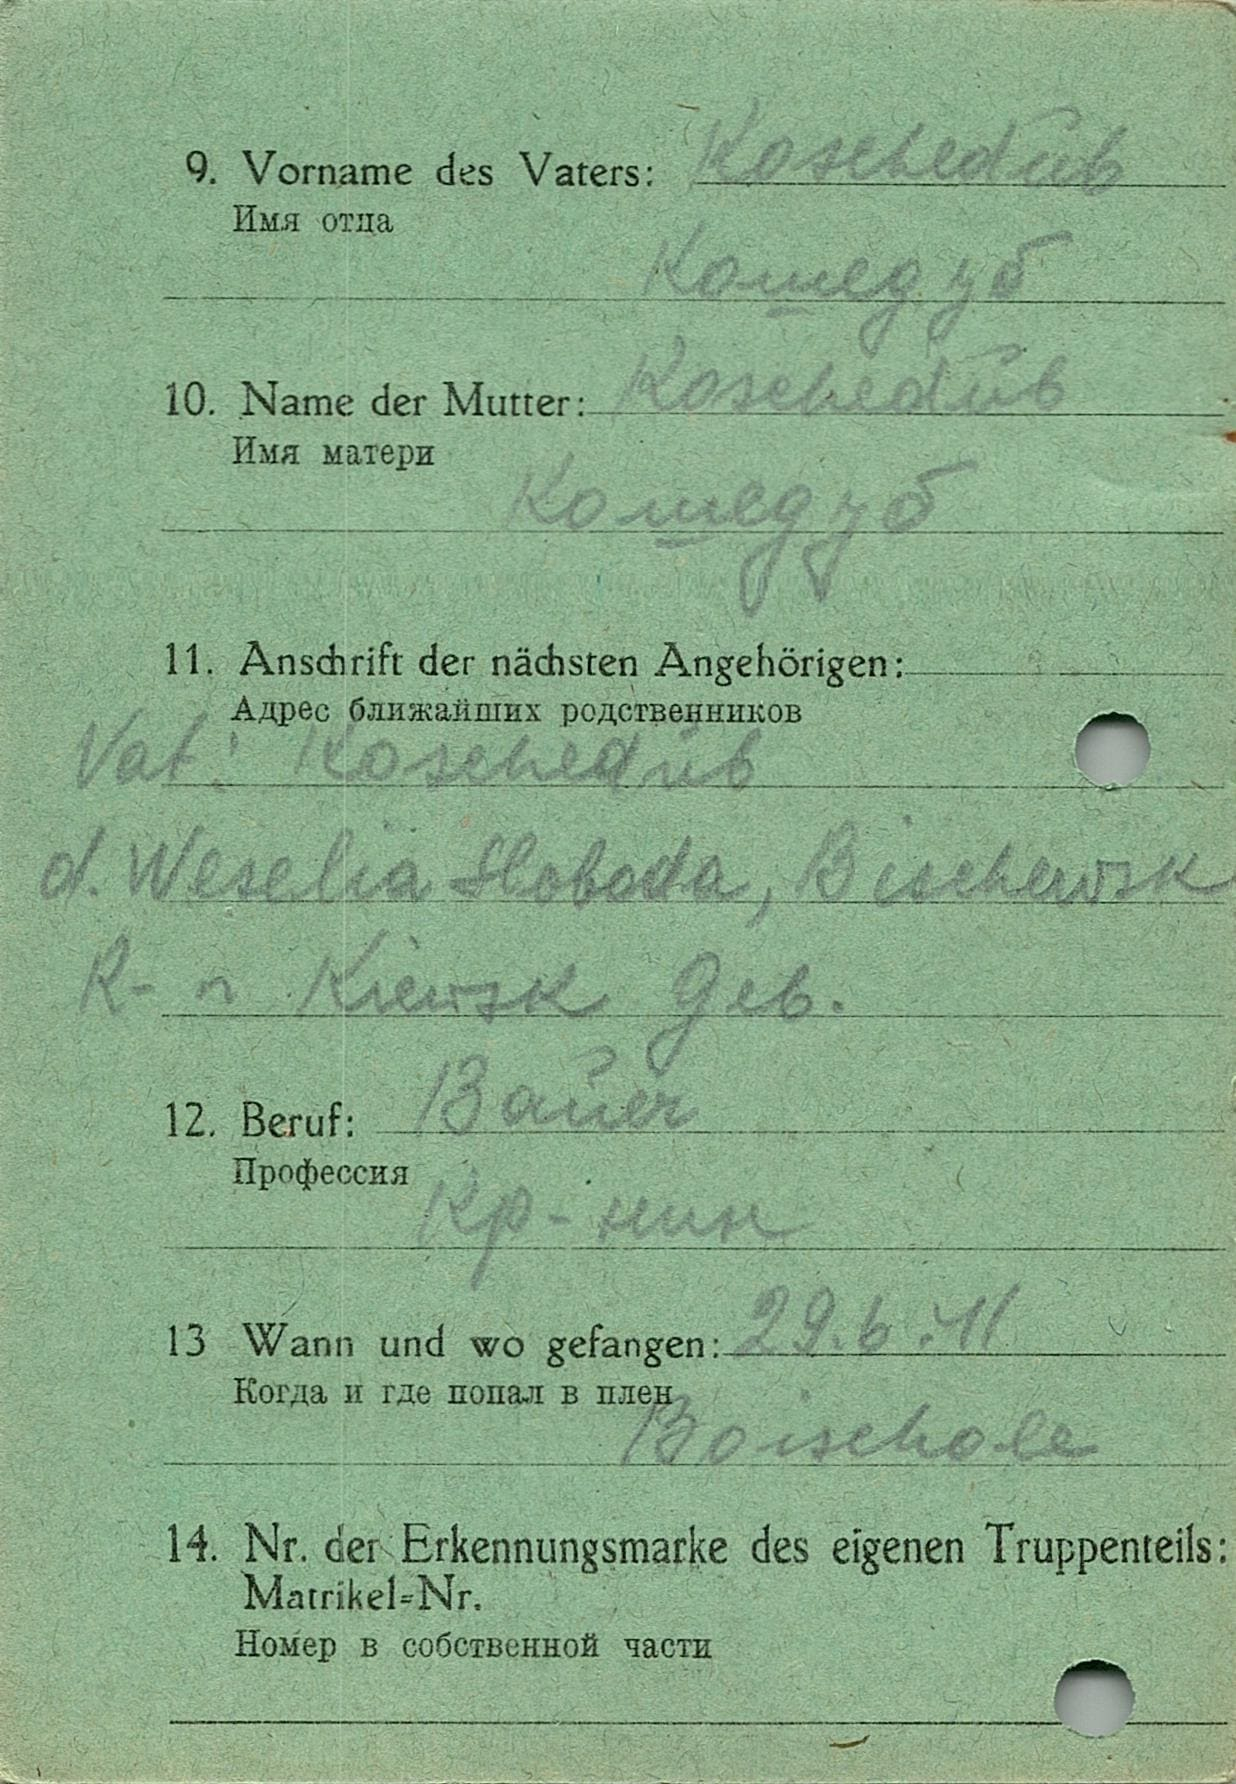 9. Vorname des Vaters: Koschedub
Имя отца
Кошедуб
10. Name der Mutter: Koschedub
Имя матери
Кошедуб
11. Anschrift der nächsten Angehörigen:
Адрес ближайших родственников
Vat: Koschedub
d. Weselia Sloboda, Bischewsk
R-n Kiewsk Geb.
12. Beruf: Bauer
Профессия
Кр-нин
13 Wann und wo gefangen: 29.6.41
Когда и где попал в плен
Boischole
14. Nr. der Erkennungsmarke des eigenen Truppenteils:
Matrikel-Nr.
Номер в собственной части